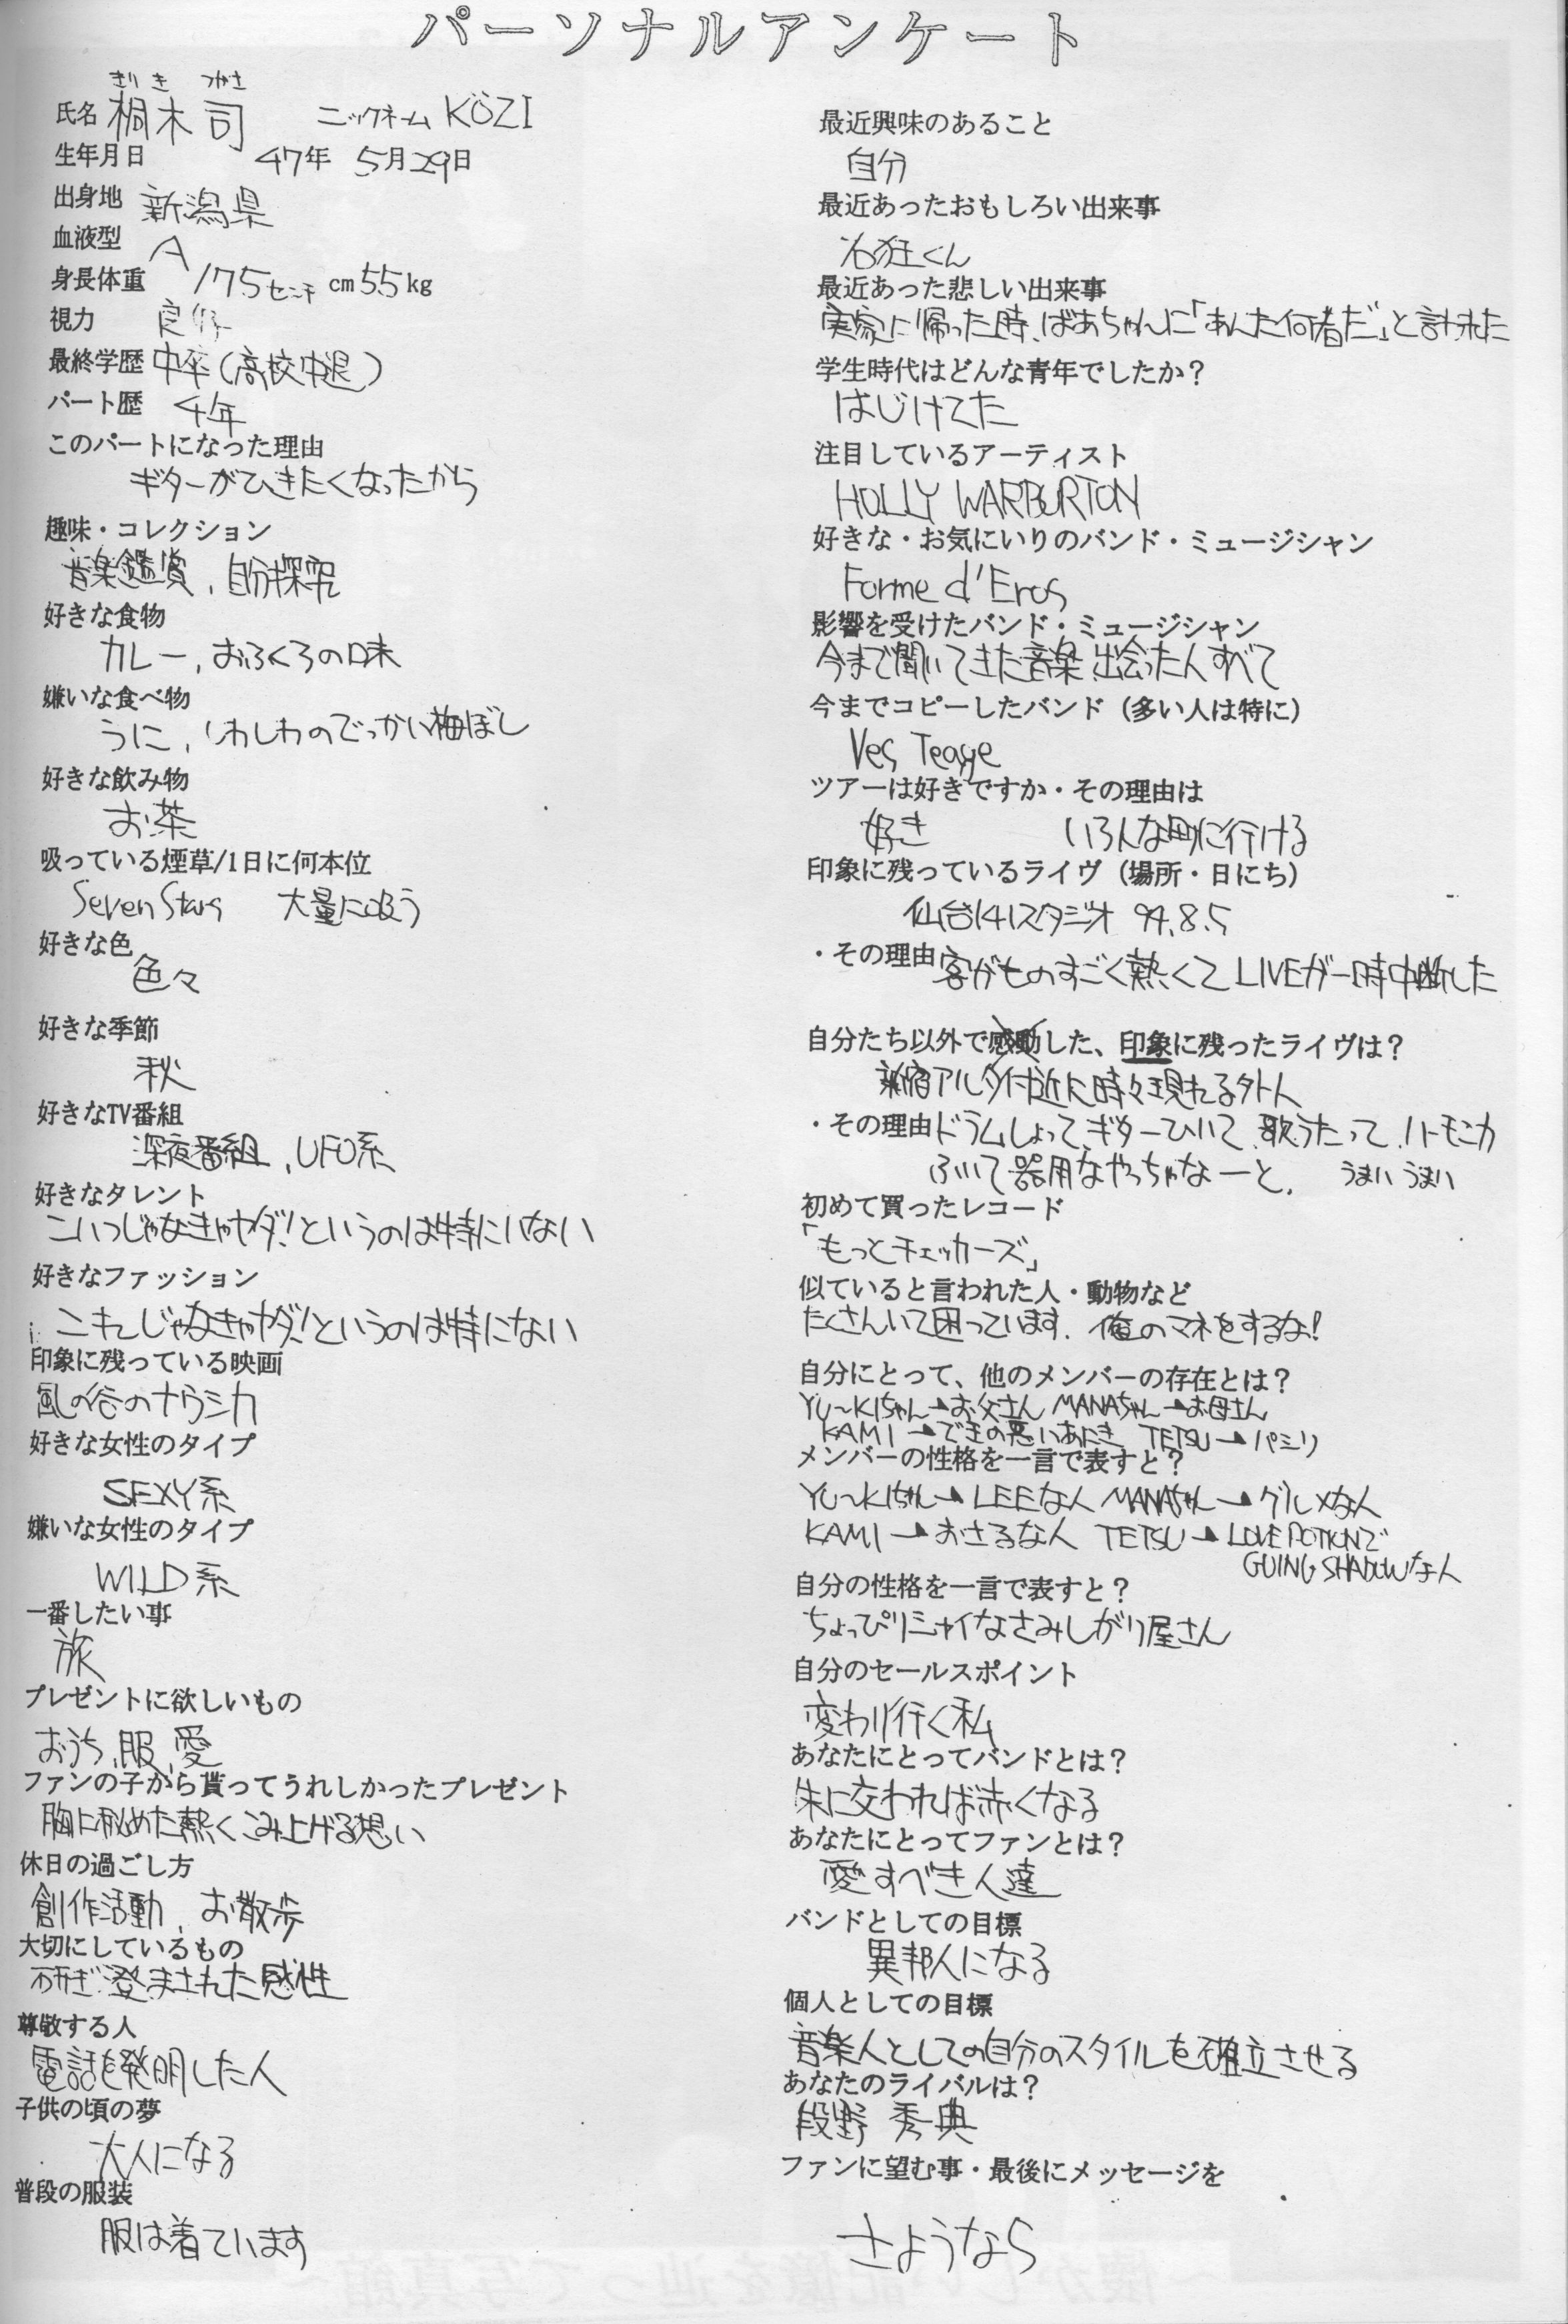 パーソナルアンケート
きりき つかさ
氏名 桐木 司 ニックネーム KÖZI
生年月日 47年 5月29日
出身地 新潟県
血液型 A
身長体重 175センチ cm 55 kg
視力 良好
最終学歴 中卒(高校中退)
パート歴 4年
このパートになった理由
ギターがひきたくなったから
趣味・コレクション
音楽鑑賞、自分探究
好きな食物
カレー、おふくろの味
嫌いな食べ物
うに、しわしわのでっかい梅ぼし
好きな飲み物
お茶
吸っている煙草/1日に何本位
Seven Stars 大量に吸う
好きな色
色々
好きな季節
秋
好きなTV番組
深夜番組、UFO系
好きなタレント
こいつじゃなきゃヤダ!というのは特にいない
好きなファッション
これじゃなきゃヤダ!というのは特にない
印象に残っている映画
風の谷のナウシカ
好きな女性のタイプ
SEXY系
嫌いな女性のタイプ
WILD系
一番したい事
旅
プレゼントに欲しいもの
おうち、服、愛
ファンの子から貰ってうれしかったプレゼント
胸に秘めた熱くこみ上げる想い
休日の過ごし方
創作活動、お散歩
大切にしているもの
研ぎ澄まされた感性
尊敬する人
電話を発明した人
子供の頃の夢
大人になる
普段の服装
服は着ています
最近興味のあること
自分
最近あったおもしろい出来事
右狂くん
最近あった悲しい出来事
実家に帰った時、ばあちゃんに「あんた何者だ」と言われた
学生時代はどんな青年でしたか?
はじけてた
注目しているアーティスト
HOLLY WARBURTON
好きな・お気にいりのバンド・ミュージシャン
Forme d'Eros
影響を受けたバンド・ミュージシャン
今まで聞いてきた音楽、出会った人すべて
今までコピーしたバンド(多い人は特に)
Ves Tearge
ツアーは好きですか・その理由は
好き いろんな町に行ける
印象に残っているライヴ(場所・日にち)
仙台141スタジオ 94.8.5
・その理由 客がものすごく熱くてLIVEが一時中断した
自分たち以外で感動した、印象に残ったライヴは?
新宿アルタ付近に時々現れる外人
・その理由 ドラムしょって、ギターひいて、歌うたって、ハーモニカ
ふいて器用なやっちゃなーと。 うまい うまい
初めて買ったレコード
「もっとチェッカーズ」
似ていると言われた人・動物など
たくさんいて困っています。俺のマネをするな!
自分にとって、他のメンバーの存在とは?
YU〜KIちゃん→お父さん MANAちゃん→お母さん
KAMI→できの悪いあにき TETSU→パシリ
メンバーの性格を一言で表すと?
YU〜KIちゃん→LEEな人 MANAちゃん→グルメな人
KAMI→おさるな人 TETSU→LOVE POTIONで
GOING SHADOWな人
自分の性格を一言で表すと?
ちょっぴりシャイなさみしがり屋さん
自分のセールスポイント
変わり行く私
あなたにとってバンドとは?
朱に交われば赤くなる
あなたにとってファンとは?
愛すべき人達
バンドとしての目標
異邦人になる
個人としての目標
音楽人としての自分のスタイルを確立させる
あなたのライバルは?
段野 秀典
ファンに望む事・最後にメッセージを
さようなら